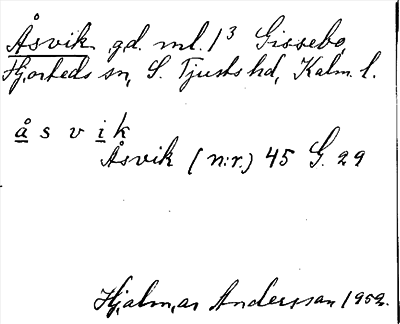 Åsvik gd. ml. 1³ Gissebo,
Hjorteds sn, S. Tjusts hd, Kalm. l.
å s v i k
Åsvik (n:r.) 45 G. 29
Hjalmar Andersson 1952.